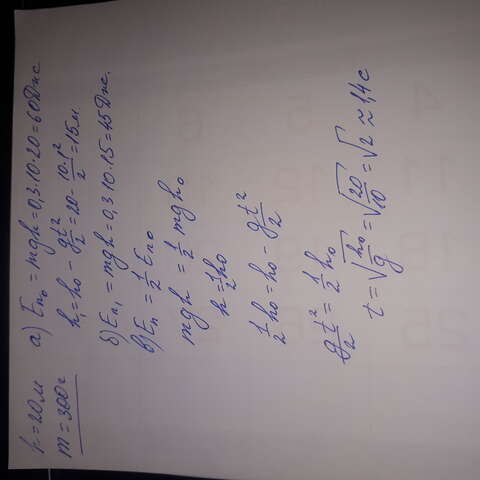 h = 20 м
m = 300 г
а) Eп₀ = mgh = 0,3·10·20 = 60 Дж
h₁ = h₀ - gt²/2 = 20 - 10·1²/2 = 15 м
б) Eп₁ = mgh = 0,3·10·15 = 45 Дж.
в) Eп = 1/2 Eп₀
mgh = 1/2 mgh₀
h = 1/2 h₀
1/2 h₀ = h₀ - gt²/2
gt²/2 = 1/2 h₀
t = √(h₀/g) = √(20/10) = √2 ≈ 1,4 с